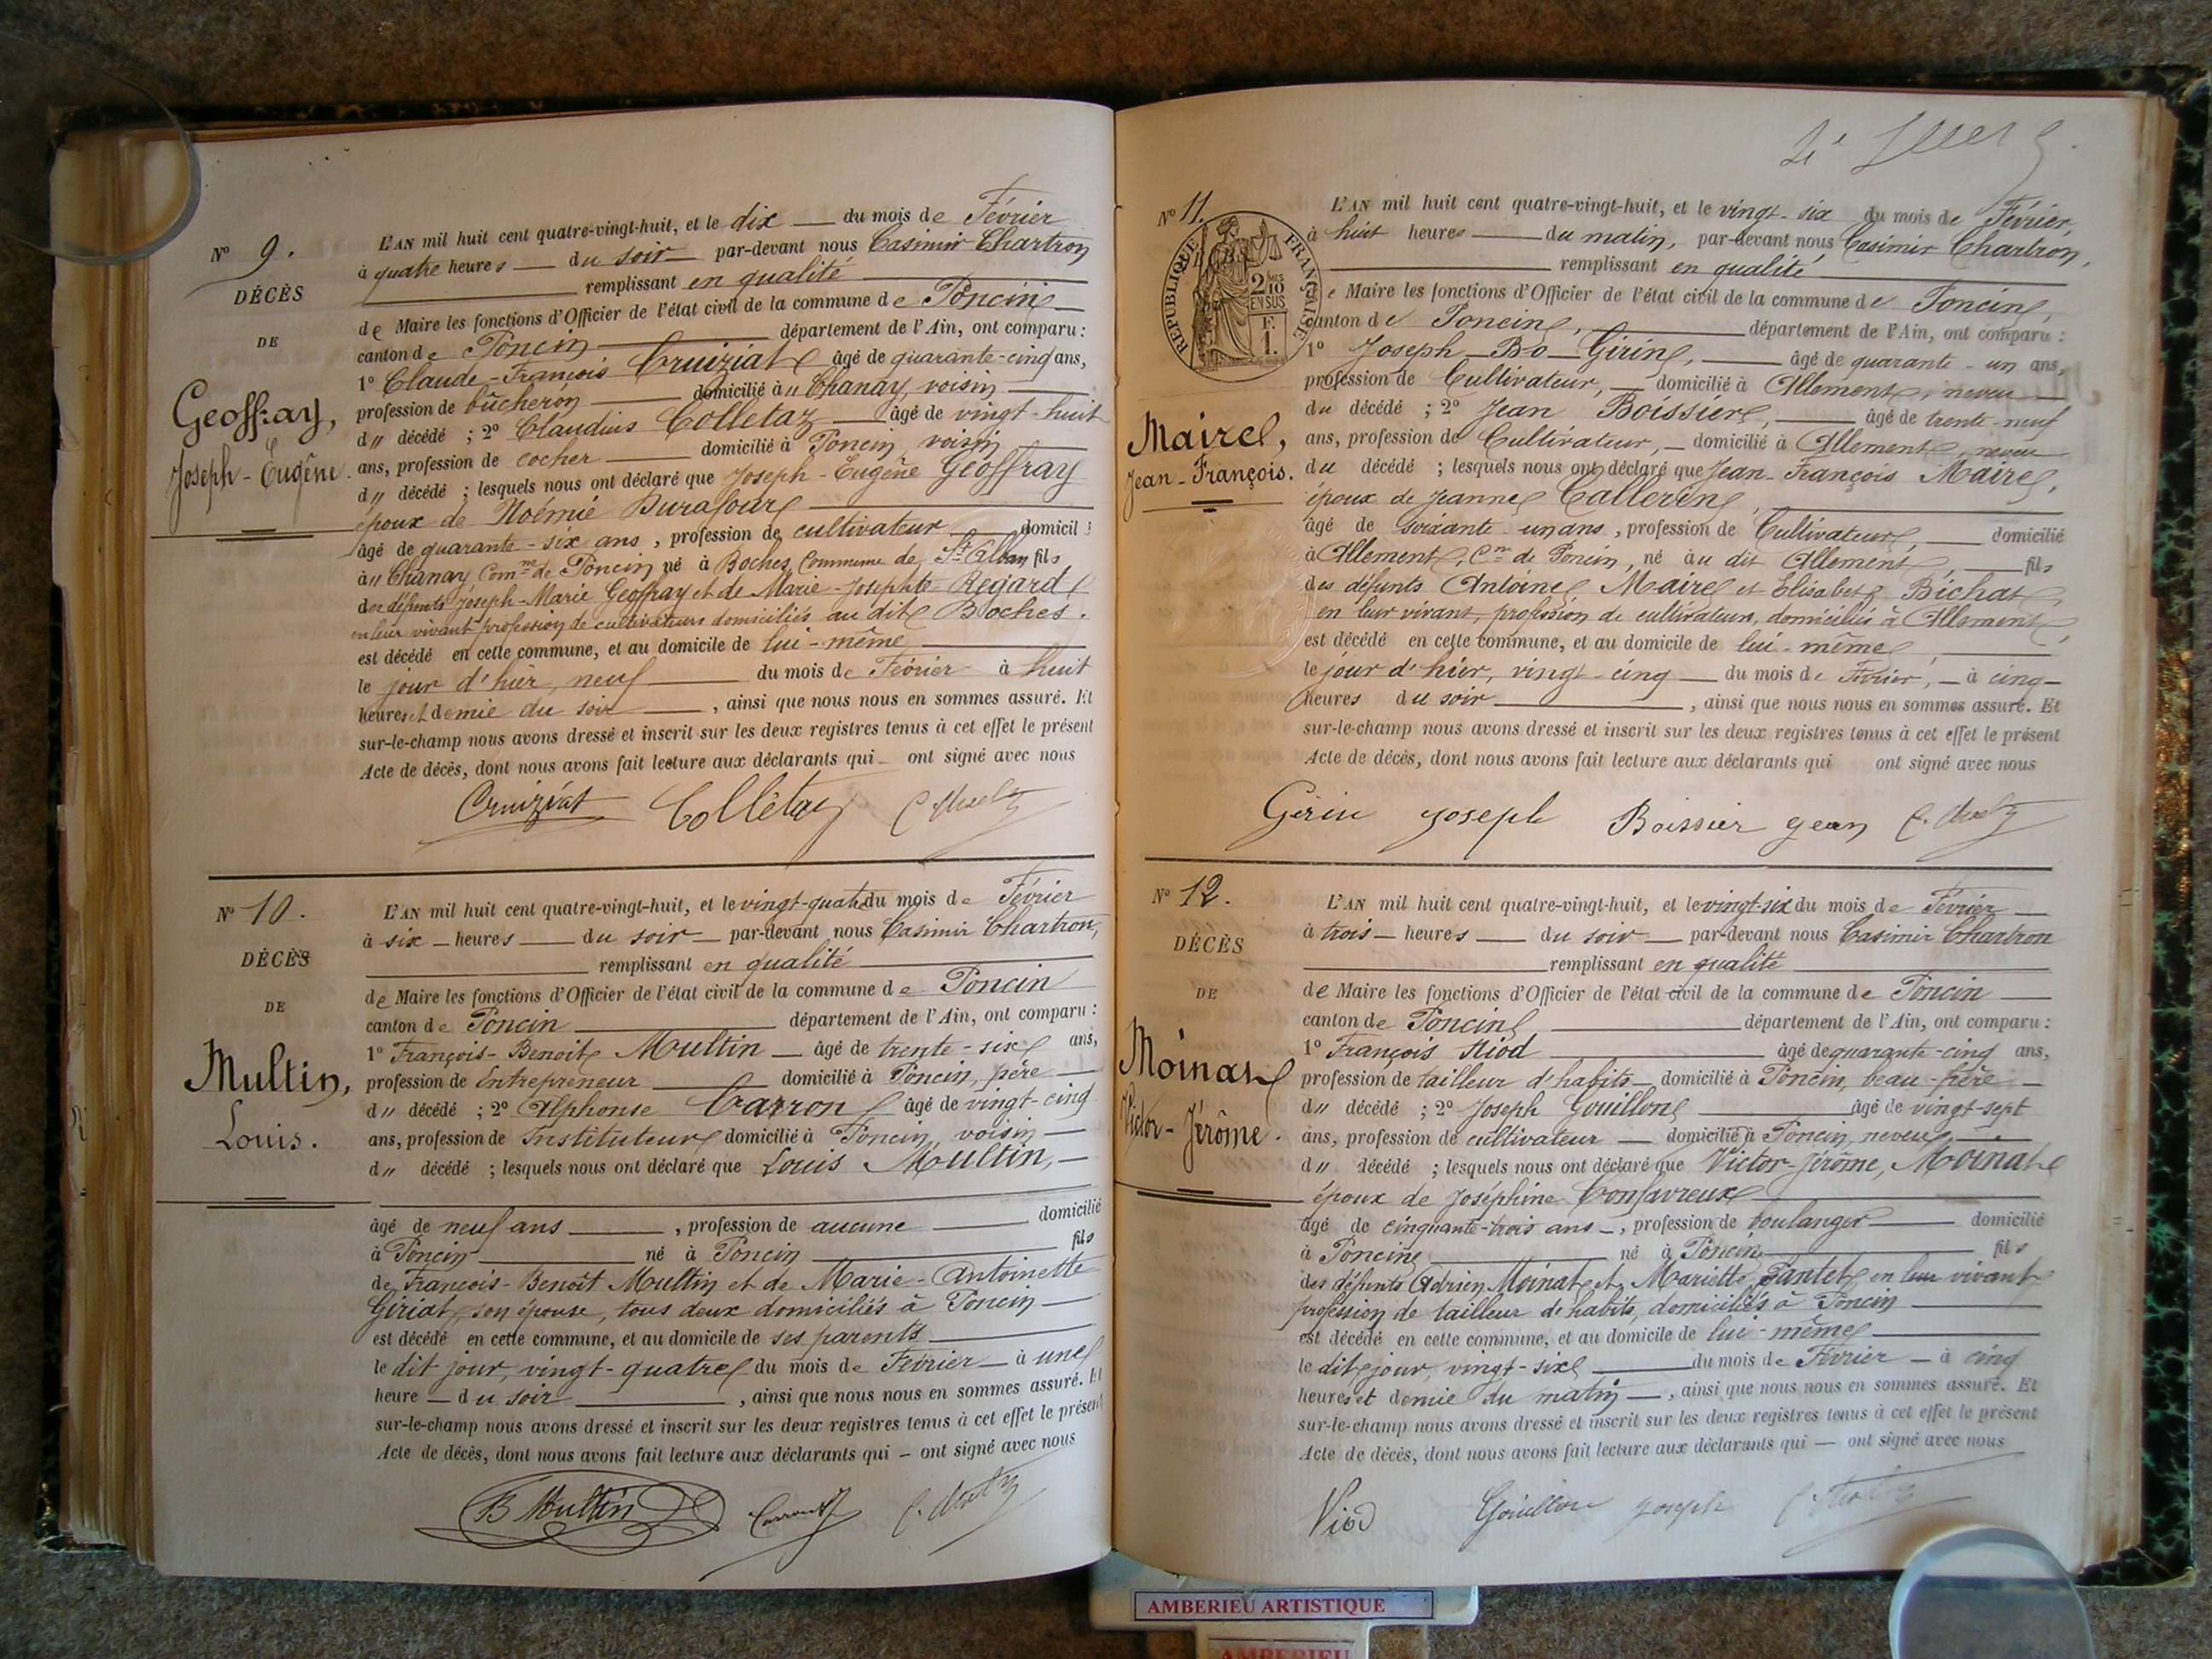 N° 9.
DÉCÈS
DE
Geoffray,
Joseph-Eugène.
L'AN mil huit cent quatre-vingt-huit, et le dix du mois de Février
à quatre heures du soir par-devant nous Casimir Chartron
remplissant en qualité
de Maire les fonctions d'Officier de l'état civil de la commune de Poncin
canton de Poncin département de l'Ain, ont comparu :
1° Claude-François Cruiziat âgé de quarante-cinq ans,
profession de bûcheron domicilié à " Chanay, voisin
d " décédé ; 2° Claudius Colletaz âgé de vingt-huit
ans, profession de cocher domicilié à Poncin, voisin
d " décédé ; lesquels nous ont déclaré que Joseph-Eugène Geoffray
époux de Noémie Durafour
âgé de quarante-six ans, profession de cultivateur domicilié
à " Chanay Com.ne de Poncin né à Boches, Commune de St Alban fils
des défunts Joseph-Marie Geoffray et de Marie-Josephte Regard
en leur vivant profession de cultivateurs domiciliés au dit Boches.
est décédé en cette commune, et au domicile de lui-même
le jour d'hier, neuf du mois de Février à huit
heures et demie du soir, ainsi que nous nous en sommes assuré. Et
sur-le-champ nous avons dressé et inscrit sur les deux registres tenus à cet effet le présent
Acte de décès, dont nous avons fait lecture aux déclarants qui ont signé avec nous
Cruiziat Collétaz
N° 10.
DÉCÈS
DE
Multin,
Louis.
L'AN mil huit cent quatre-vingt-huit, et le vingt-quatre du mois de Février
à six heures du soir par-devant nous Casimir Chartron,
remplissant en qualité
de Maire les fonctions d'Officier de l'état civil de la commune de Poncin
canton de Poncin département de l'Ain, ont comparu :
1° François-Benoit Multin âgé de trente-six ans,
profession de Entrepreneur domicilié à Poncin, père
d " décédé ; 2° Alphonse Carron âgé de vingt-cinq
ans, profession de Instituteur domicilié à Poncin, voisin
d " décédé ; lesquels nous ont déclaré que Louis Multin,
âgé de neuf ans, profession de aucune domicilié
à Poncin né à Poncin fils
de François-Benoît Multin et de Marie-Antoinette
Giriat, son épouse, tous deux domiciliés à Poncin
est décédé en cette commune, et au domicile de ses parents
le dit jour, vingt-quatre du mois de Février à une
heure du soir, ainsi que nous nous en sommes assuré. Et
sur-le-champ nous avons dressé et inscrit sur les deux registres tenus à cet effet le présent
Acte de décès, dont nous avons fait lecture aux déclarants qui ont signé avec nous
B Multin Carron
N° 11.
RÉPUBLIQUE FRANÇAISE
2/10 EN SUS
F. 1.
Mairel,
Jean-François.
L'AN mil huit cent quatre-vingt-huit, et le vingt-six du mois de Février,
à huit heures du matin, par-devant nous Casimir Chartron,
remplissant en qualité
e Maire les fonctions d'Officier de l'état civil de la commune de Poncin,
canton de Poncin, département de l'Ain, ont comparu :
1° Joseph-Bo-Girin, âgé de quarante-un ans,
profession de Cultivateur, domicilié à Allement, neveu
du décédé ; 2° Jean Boissière, âgé de trente-neuf
ans, profession de Cultivateur, domicilié à Allement, neveu
du décédé ; lesquels nous ont déclaré que Jean-François Mairel,
époux de Jeanne Callerin
âgé de soixante-un ans, profession de Cultivateur, domicilié
à Allement, Cne de Poncin, né au dit Allement, fils
des défunts Antoine Mairel et Elisabeth Bichat,
en leur vivant, profession de cultivateurs, domiciliés à Allement,
est décédé en cette commune, et au domicile de lui-même,
le jour d'hier, vingt-cinq du mois de Février, à cinq
heures du soir, ainsi que nous nous en sommes assuré. Et
sur-le-champ nous avons dressé et inscrit sur les deux registres tenus à cet effet le présent
Acte de décès, dont nous avons fait lecture aux déclarants qui ont signé avec nous
Girin joseph Boissier jean
N° 12.
DÉCÈS
DE
Moinat
Victor-Jérôme.
L'AN mil huit cent quatre-vingt-huit, et le vingt-six du mois de Février
à trois heures du soir par-devant nous Casimir Chartron
remplissant en qualité
de Maire les fonctions d'Officier de l'état civil de la commune de Poncin
canton de Poncin, département de l'Ain, ont comparu :
1° François Niod âgé de quarante-cinq ans,
profession de tailleur d'habits domicilié à Poncin, beau-frère
d " décédé ; 2° Joseph Gouillon âgé de vingt-sept
ans, profession de cultivateur domicilié à Poncin, neveu
d " décédé ; lesquels nous ont déclaré que Victor-Jérôme, Moinat
époux de Joséphine Confavreux
âgé de cinquante-trois ans, profession de boulanger domicilié
à Poncin, né à Poncin fils
des défunts Adrien Moinat et Mariette Pantet en leur vivant
profession de tailleur de habits, domiciliés à Poncin
est décédé en cette commune, et au domicile de lui-même
le dit jour, vingt-six du mois de Février à cinq
heures et demie du matin, ainsi que nous nous en sommes assuré. Et
sur-le-champ nous avons dressé et inscrit sur les deux registres tenus à cet effet le présent
Acte de décès, dont nous avons fait lecture aux déclarants qui ont signé avec nous
Niod Gouillon joseph
AMBERIEU ARTISTIQUE
AMBERIEU